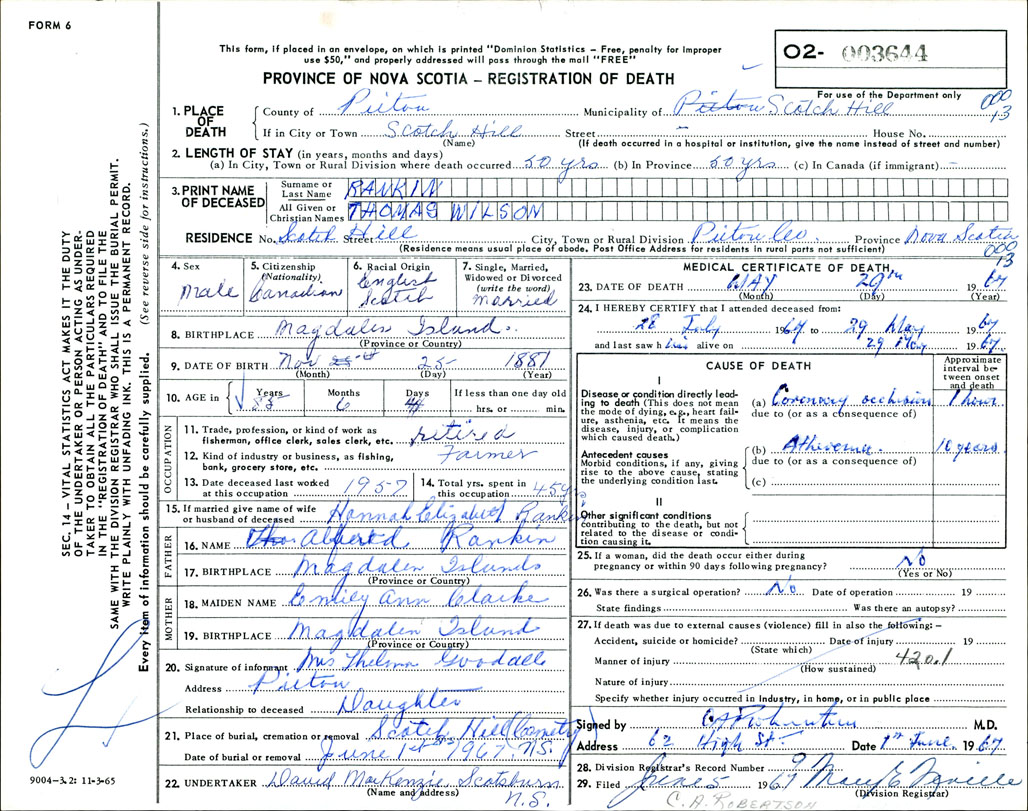 FORM 6
This form, if placed in an envelope, on which is printed "Dominion Statistics – Free, penalty for improper
use $50," and properly addressed will pass through the mail "FREE"
PROVINCE OF NOVA SCOTIA – REGISTRATION OF DEATH
O2- 003644
For use of the Department only
1. PLACE OF DEATH
County of Pictou Municipality of Pictou Scotch Hill 000 13
If in City or Town Scotch Hill Street – House No.
(Name) (If death occurred in a hospital or institution, give the name instead of street and number)
2. LENGTH OF STAY (in years, months and days)
(a) In City, Town or Rural Division where death occurred 50 yrs (b) In Province 50 yrs (c) In Canada (if immigrant) –
3. PRINT NAME OF DECEASED
Surname or Last Name RANKIN
All Given or Christian Names THOMAS WILSON
RESIDENCE No. Scotch Street Hill City, Town or Rural Division Pictou Co. Province Nova Scotia
(Residence means usual place of abode. Post Office Address for residents in rural parts not sufficient) 000 13
4. Sex Male
5. Citizenship (Nationality) Canadian
6. Racial Origin English Scotch
7. Single, Married, Widowed or Divorced (write the word) Married
8. BIRTHPLACE Magdalen Islands.
(Province or Country)
9. DATE OF BIRTH Nov 25 1881
(Month) (Day) (Year)
10. AGE in Years 85 Months 6 Days 4 If less than one day old hrs. or min.
OCCUPATION
11. Trade, profession or kind of work as fisherman, office clerk, sales clerk, etc. retired
12. Kind of industry or business, as fishing, bank, grocery store, etc. Farmer
13. Date deceased last worked at this occupation 1957
14. Total yrs. spent in this occupation 45 yrs.
15. If married give name of wife or husband of deceased Hannah Elizabeth Rankin
FATHER
16. NAME Thos Alfred Rankin
17. BIRTHPLACE Magdalen Islands
(Province or Country)
MOTHER
18. MAIDEN NAME Emily Ann Clarke
19. BIRTHPLACE Magdalen Island
(Province or Country)
20. Signature of informant Mrs Thelma Goodall
Address Pictou
Relationship to deceased Daughter
21. Place of burial, cremation or removal Scotch Hill Cemetry
Date of burial or removal June 1st 1967. N.S.
22. UNDERTAKER David MacKenzie Scotsburn N.S.
(Name and address)
MEDICAL CERTIFICATE OF DEATH
23. DATE OF DEATH MAY 29th 1967
(Month) (Day) (Year)
24. I HEREBY CERTIFY that I attended deceased from:
28 July 1964 to 29 May 1967
and last saw him alive on 29 May 1967.
CAUSE OF DEATH
Approximate interval between onset and death
I
Disease or condition directly leading to death (This does not mean the mode of dying, e.g., heart failure, asthenia, etc. It means the disease, injury, or complication which caused death.)
(a) Coronary occlusion 1 hour
due to (or as a consequence of)
Antecedent causes
Morbid conditions, if any, giving rise to the above cause, stating the underlying condition last.
(b) Atheroma. 10 years
due to (or as a consequence of)
(c)
II
Other significant conditions
contributing to the death, but not related to the disease or condition causing it.
25. If a woman, did the death occur either during pregnancy or within 90 days following pregnancy? No
(Yes or No)
26. Was there a surgical operation? No Date of operation 19
State findings Was there an autopsy?
27. If death was due to external causes (violence) fill in also the following: –
Accident, suicide or homicide? Date of injury 19
(State which)
Manner of injury 420.1
(How sustained)
Nature of injury
Specify whether injury occurred in industry, in home, or in public place
Signed by M.D.
Address 62 High St. Date 1st June. 1967.
28. Division Registrar's Record Number 9
29. Filed June 5 1967 Mary E Neville
(Division Registrar)
C. A. ROBERTSON
SEC. 14 – VITAL STATISTICS ACT MAKES IT THE DUTY
OF THE UNDERTAKER OR PERSON ACTING AS UNDER-
TAKER TO OBTAIN ALL THE PARTICULARS REQUIRED
IN THE "REGISTRATION OF DEATH" AND TO FILE THE
SAME WITH THE DIVISION REGISTRAR WHO SHALL ISSUE THE BURIAL PERMIT.
WRITE PLAINLY WITH UNFADING INK. THIS IS A PERMANENT RECORD.
Every item of information should be carefully supplied. (See reverse side for instructions.)
9004-3.2: 11-3-65